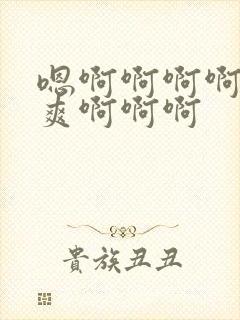 嗯啊啊啊啊
爽啊啊啊
貴族丑丑